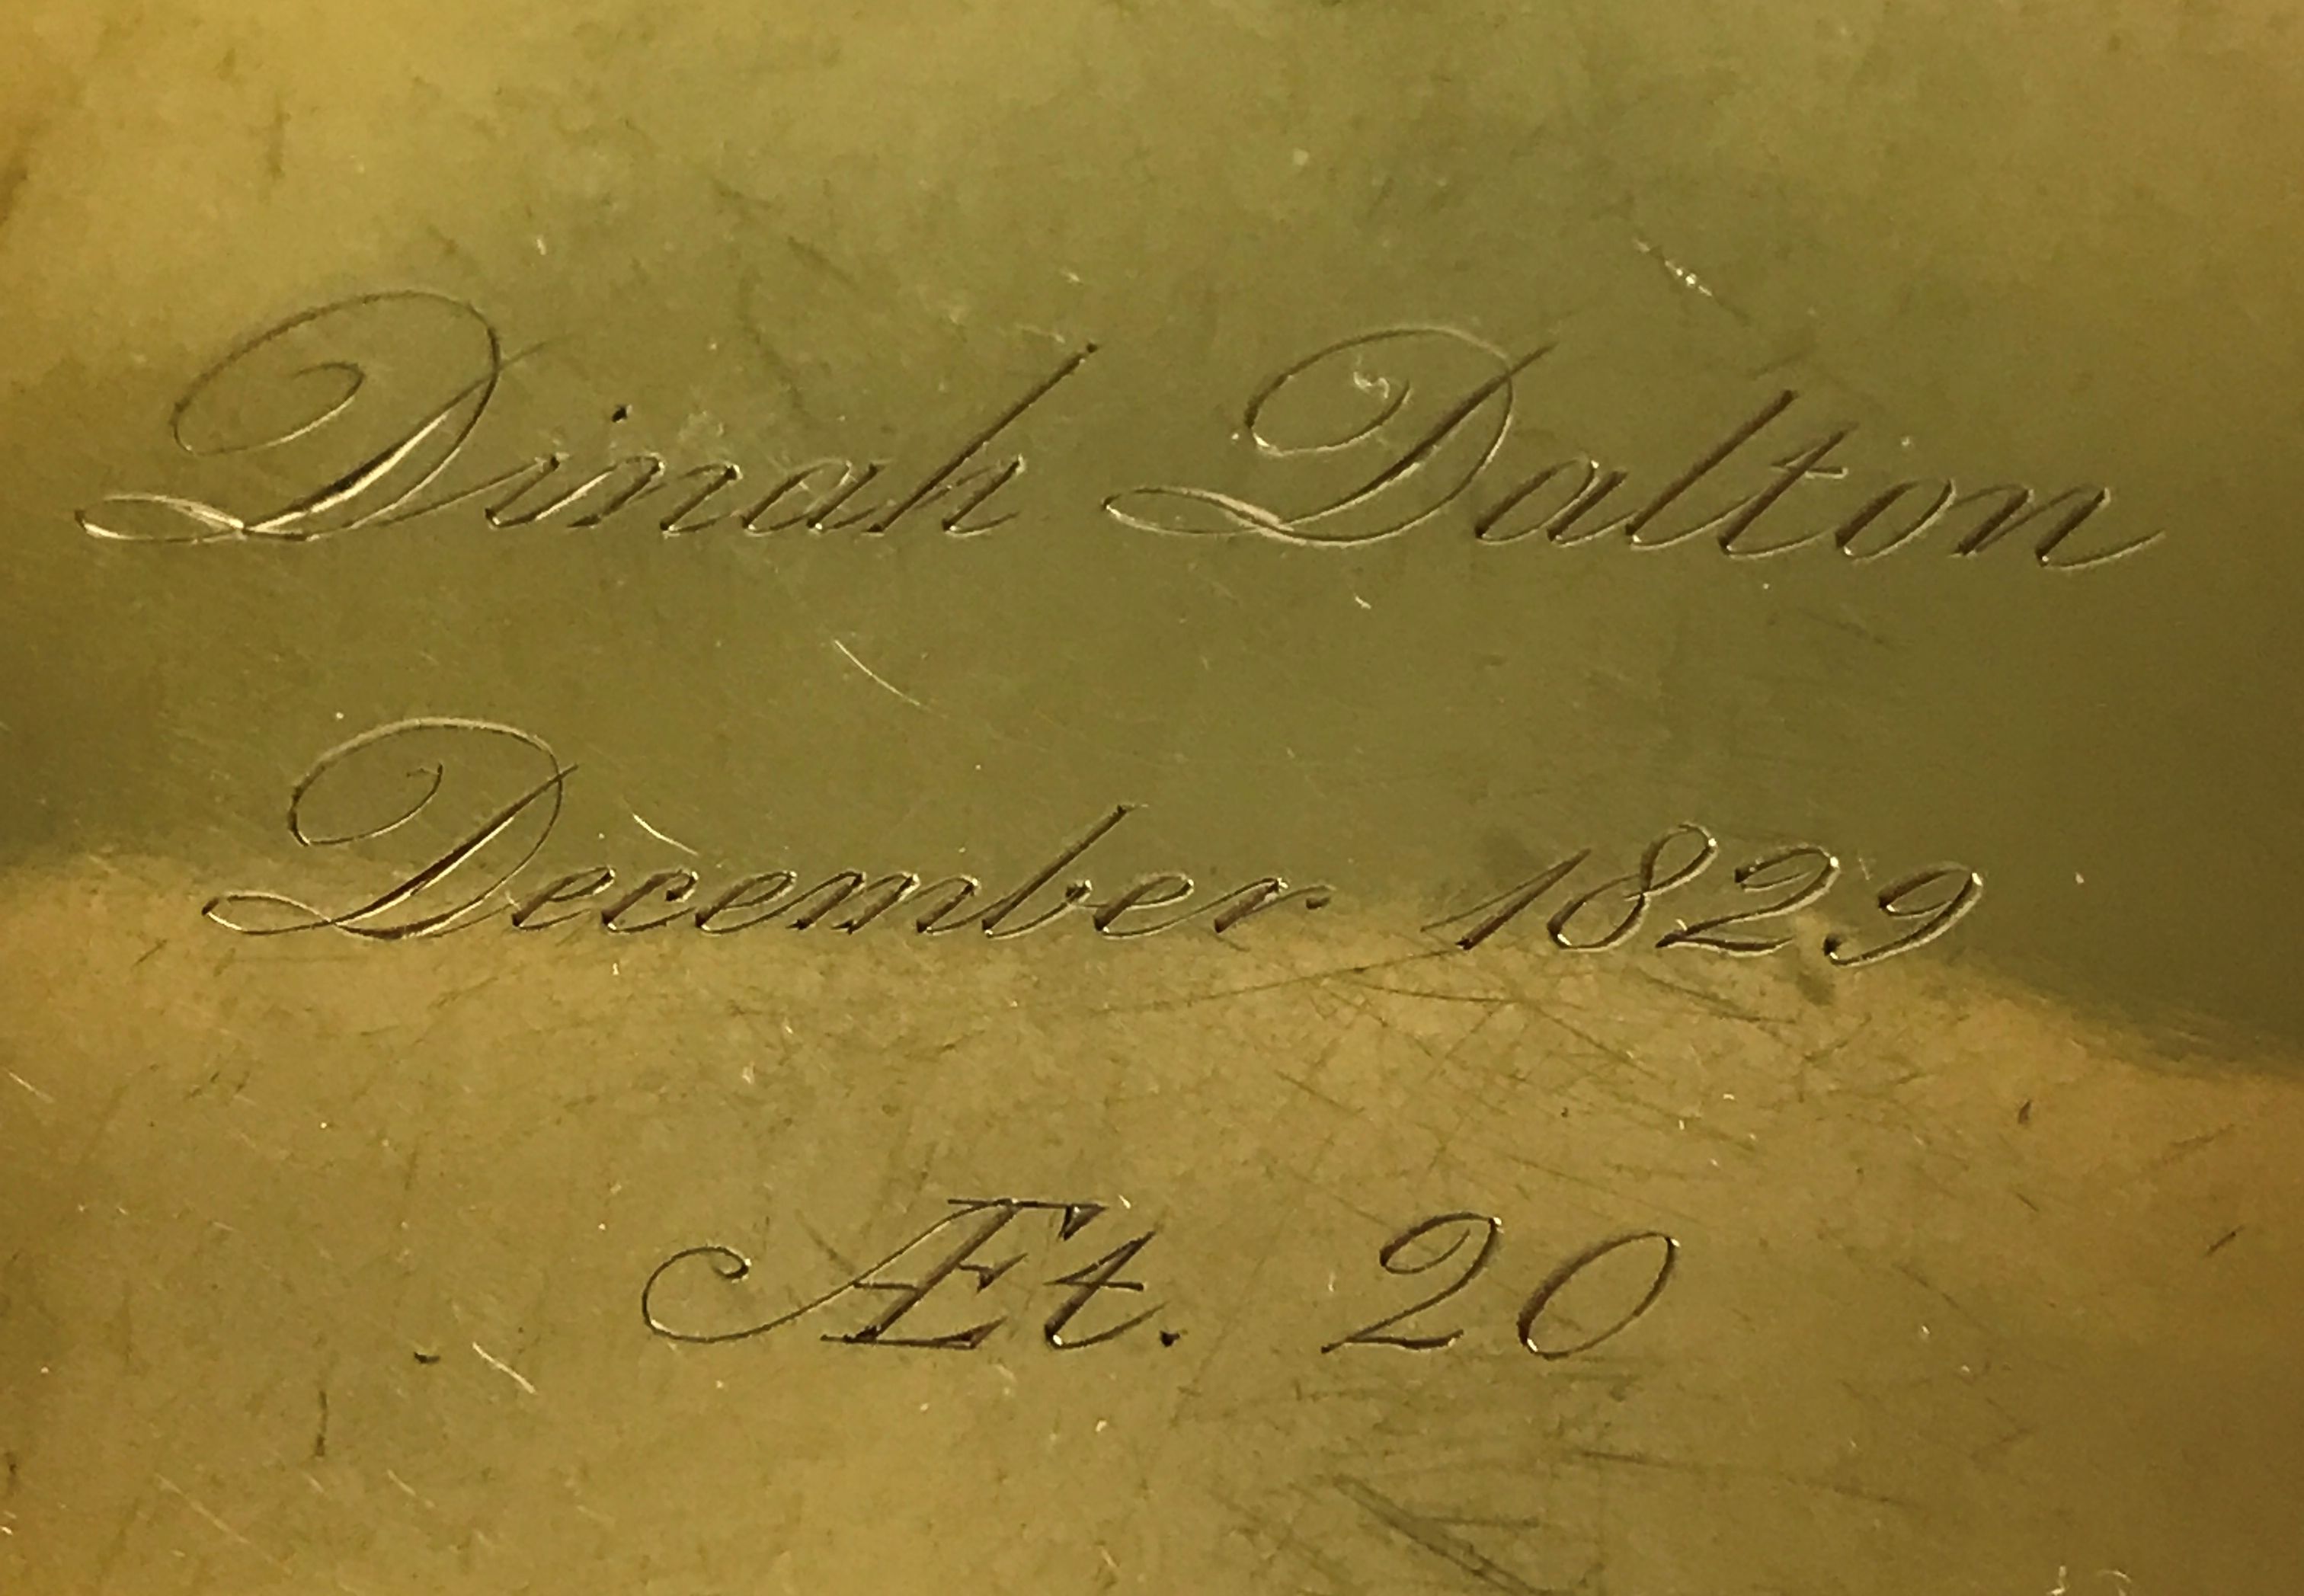 Dinah Dalton
December 1829
Æt. 20